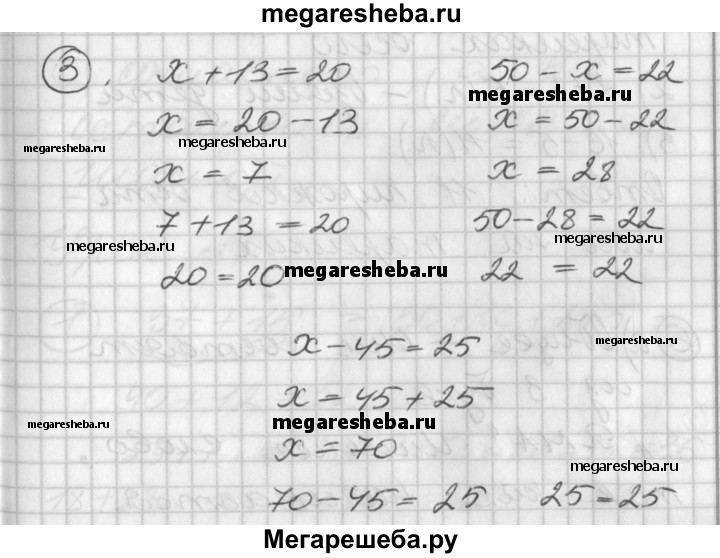 megaresheba.ru
3. x + 13 = 20
x = 20 - 13
x = 7
7 + 13 = 20
20 = 20
50 - x = 22
x = 50 - 22
x = 28
50 - 28 = 22
22 = 22
megaresheba.ru
megaresheba.ru
megaresheba.ru
megaresheba.ru
megaresheba.ru
megaresheba.ru
megaresheba.ru
x - 45 = 25
x = 45 + 25
x = 70
70 - 45 = 25 25 = 25
megaresheba.ru
megaresheba.ru
megaresheba.ru
megaresheba.ru
Мегарешеба.ру